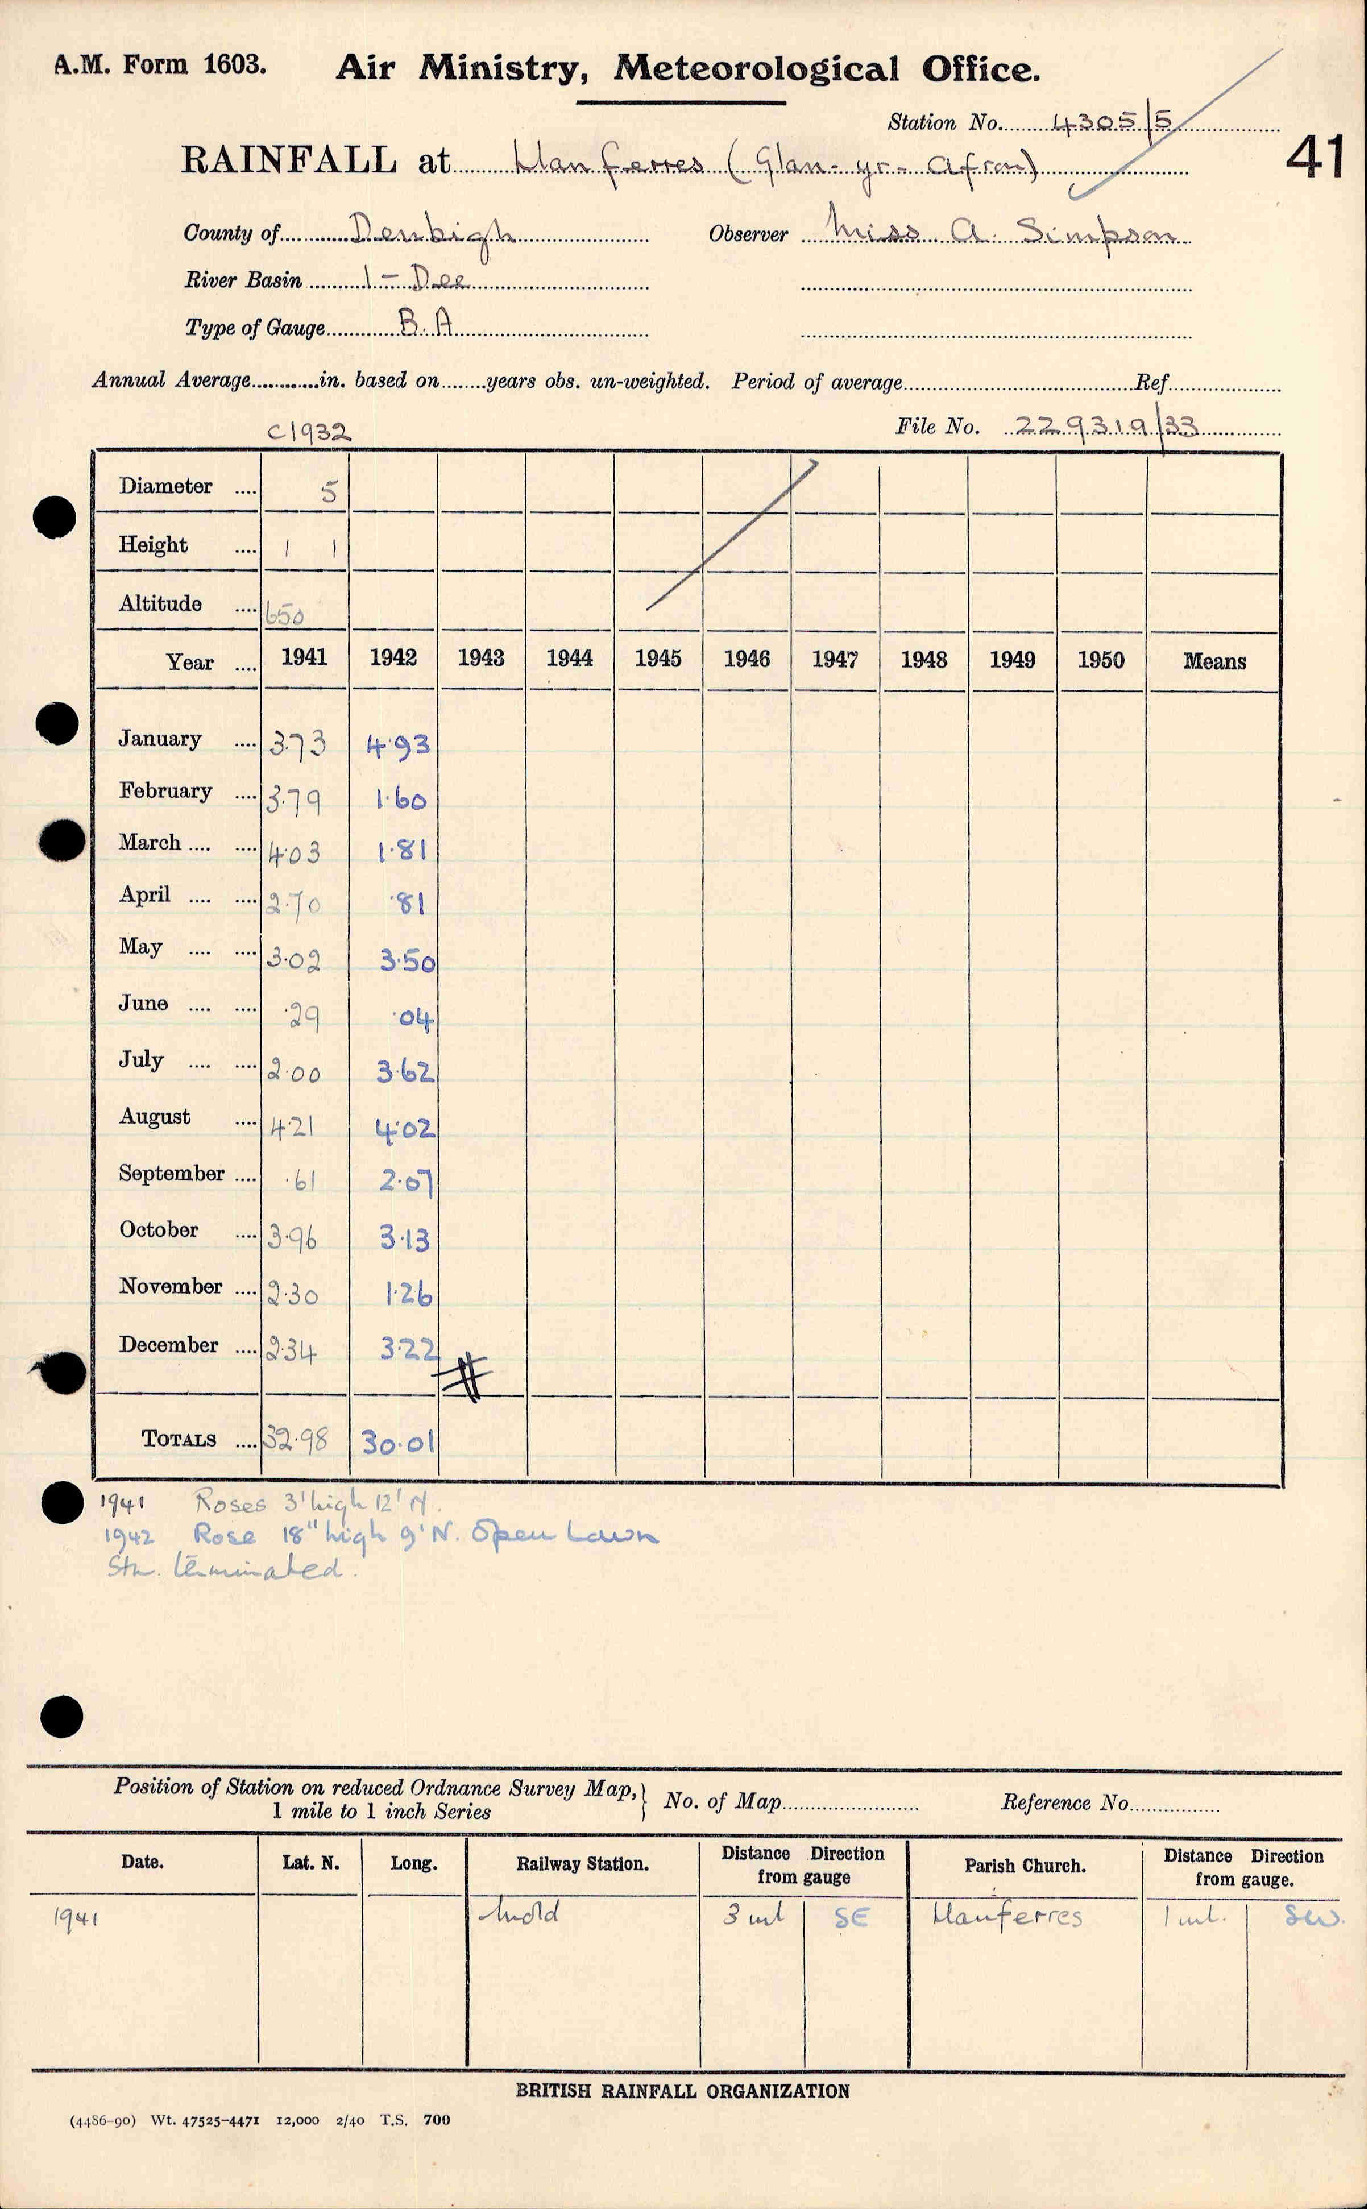 A.M. Form 1603. Air Ministry, Meteorological Office.
Station No. 4305/5
41
RAINFALL at Llanferres (Glan-yr-Afron)
County of Denbigh Observer Miss A. Simpson
River Basin 1 - Dee
Type of Gauge B.A
Annual Average in. based on years obs. un-weighted. Period of average Ref
C1932 File No. 229319/33
Diameter 5
Height 1 1
Altitude 650
Year 1941 1942 1943 1944 1945 1946 1947 1948 1949 1950 Means
January 3.73 4.93
February 3.79 1.60
March 4.03 1.81
April 2.70 .81
May 3.02 3.50
June .29 .04
July 2.00 3.62
August 4.21 4.02
September .61 2.07
October 3.96 3.13
November 2.30 1.26
December 2.34 3.22
TOTALS 32.98 30.01
1941 Roses 3' high 12' N.
1942 Rose 18" high 9' N. Open Lawn
Stn. terminated.
Position of Station on reduced Ordnance Survey Map, } No. of Map Reference No.
1 mile to 1 inch Series
Date. Lat. N. Long. Railway Station. Distance Direction from gauge Parish Church. Distance Direction from gauge.
1941 Mold 3 ml SE Llanferres 1 ml. SW.
BRITISH RAINFALL ORGANIZATION
(4486-90) Wt. 47525-4471 12,000 2/40 T.S. 700